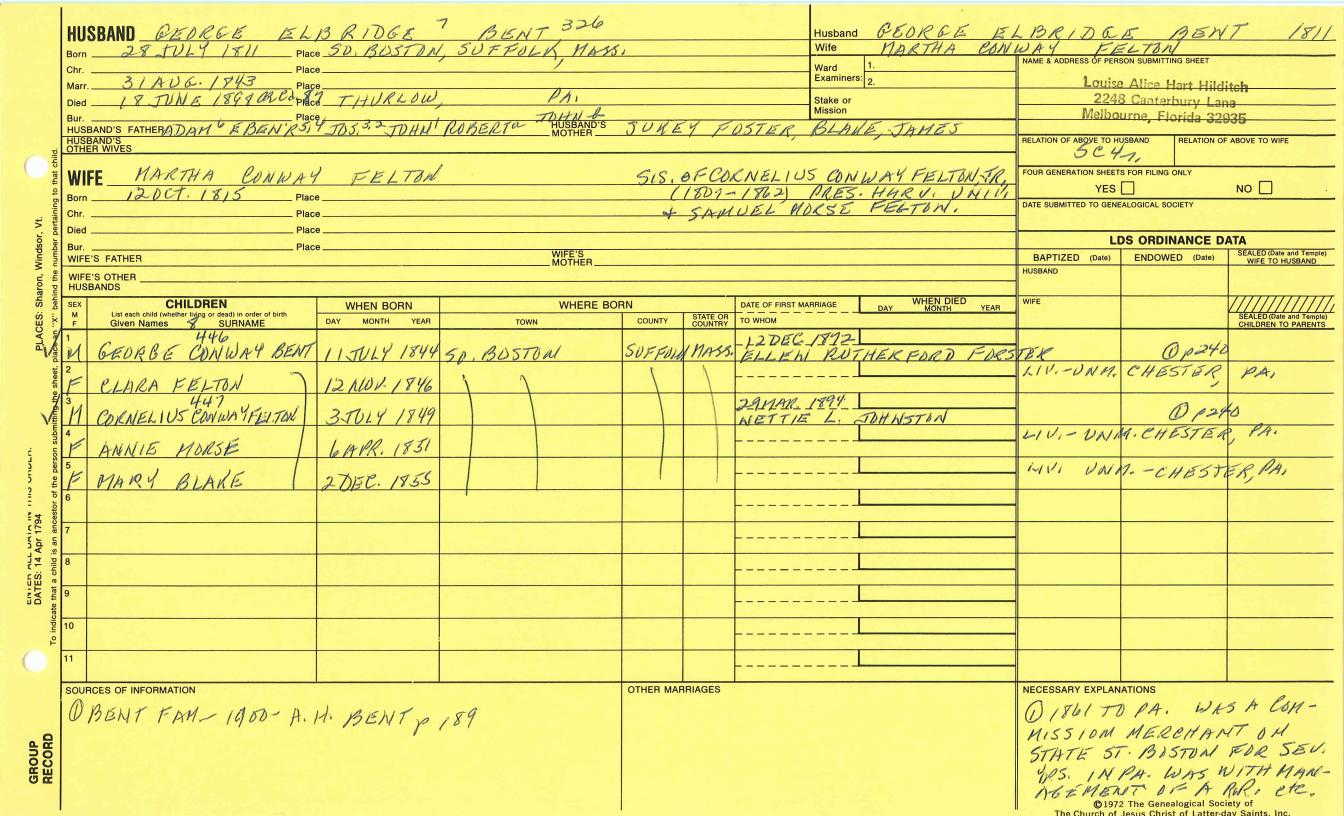 HUSBAND GEORGE ELBRIDGE 7 BENT 326
Born 28 JULY 1811 Place SO. BOSTON, SUFFOLK, MASS.
Chr. Place
Marr. 31 AUG. 1843 Place
Died 18 JUNE 1898 Place THURLOW, PA.
Bur. Place
HUSBAND'S FATHER ADAM 6 EBEN'R 5,4 JOS. 3,2 JOHN 1 ROBERT HUSBAND'S MOTHER SUKEY FOSTER, BLAKE, JAMES
HUSBAND'S OTHER WIVES
Husband GEORGE ELBRIDGE BENT 1811
Wife MARTHA CONWAY FELTON
Ward Examiners: 1.
2.
Stake or Mission
NAME & ADDRESS OF PERSON SUBMITTING SHEET
Louise Alice Hart Hilditch
2248 Canterbury Lane
Melbourne, Florida 32935
RELATION OF ABOVE TO HUSBAND RELATION OF ABOVE TO WIFE
5C4r.
FOUR GENERATION SHEETS FOR FILING ONLY
YES NO
DATE SUBMITTED TO GENEALOGICAL SOCIETY
WIFE MARTHA CONWAY FELTON SIS. OF CORNELIUS CONWAY FELTON, JR.
Born 12 OCT. 1815 Place (1807-1862) PRES. HARV. UNIV.
Chr. Place + SAMUEL MORSE FELTON.
Died Place
Bur. Place
WIFE'S FATHER WIFE'S MOTHER
WIFE'S OTHER HUSBANDS
LDS ORDINANCE DATA
BAPTIZED (Date) ENDOWED (Date) SEALED (Date and Temple) WIFE TO HUSBAND
HUSBAND
WIFE
SEALED (Date and Temple) CHILDREN TO PARENTS
SEX M F
CHILDREN
List each child (whether living or dead) in order of birth
Given Names 8 SURNAME
WHEN BORN
DAY MONTH YEAR
WHERE BORN
TOWN COUNTY STATE OR COUNTRY
DATE OF FIRST MARRIAGE
TO WHOM
WHEN DIED
DAY MONTH YEAR
446 12 DEC. 1872
1 M GEORGE CONWAY BENT 11 JULY 1844 SO. BOSTON SUFFOLK MASS. ELLEN RUTHERFORD FORSTER ① p240
2 F CLARA FELTON 12 NOV. 1846 LIV.-UNM. CHESTER, PA.
447 29 MAR. 1894
3 M CORNELIUS CONWAY FELTON 3 JULY 1849 NETTIE L. JOHNSTON ① p240
4 F ANNIE MORSE 6 APR. 1851 LIV.- UNM. CHESTER, PA.
5 F MARY BLAKE 2 DEC. 1855 LIV. UNM. - CHESTER, PA.
6
7
8
9
10
11
SOURCES OF INFORMATION
① BENT FAM- 1900- A.H. BENT p 189
OTHER MARRIAGES
NECESSARY EXPLANATIONS
① 1861 TO PA. WAS A COM-
MISSION MERCHANT ON
STATE ST. BOSTON FOR SEV.
YRS. IN PA. WAS WITH MAN-
AGEMENT OF A R.R. etc.
©1972 The Genealogical Society of
The Church of Jesus Christ of Latter-day Saints, Inc.
PLACES: Sharon, Windsor, Vt.
To indicate that a child is an ancestor of the person submitting the sheet, place an "X" behind the number pertaining to that child.
ENTER ALL DATA IN THIS ORDER:
DATES: 14 Apr 1794
GROUP RECORD